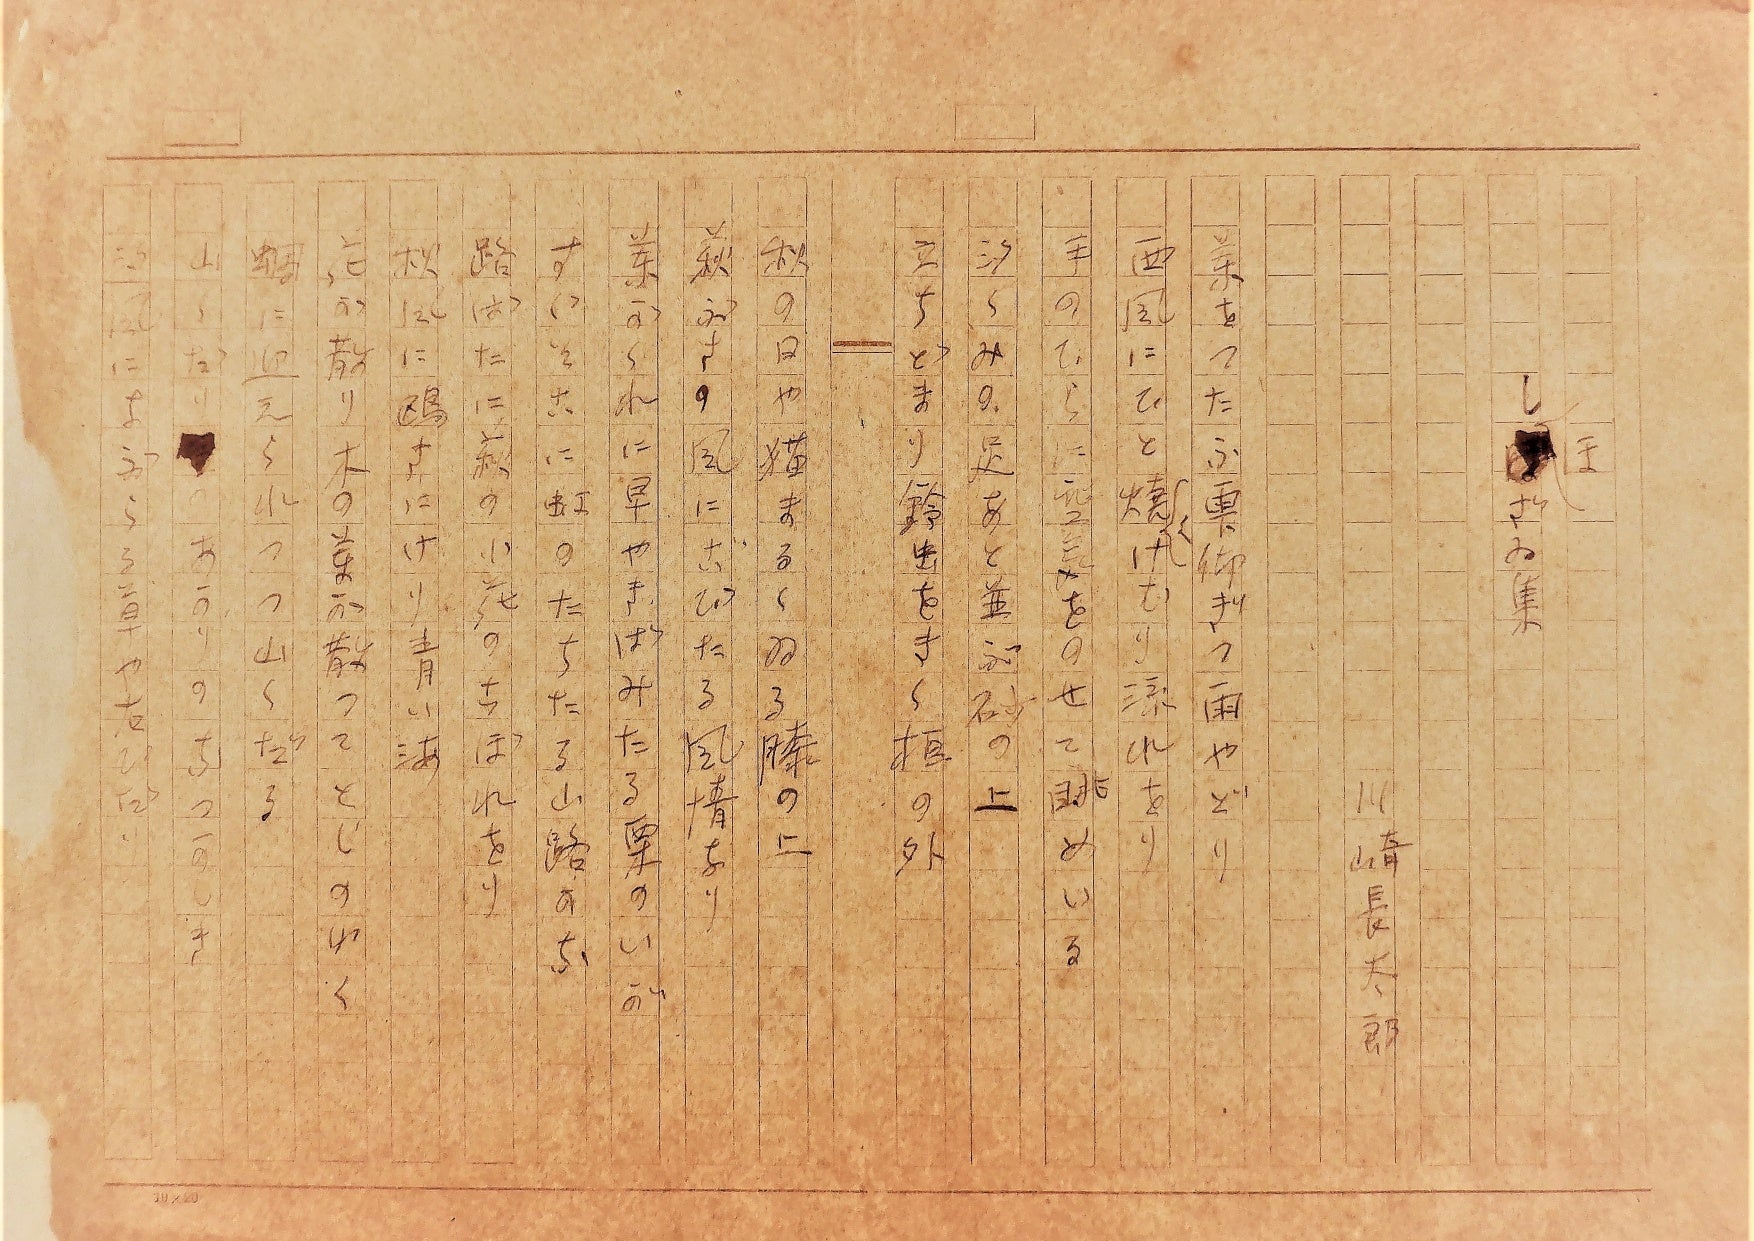 しほざゐ集
川崎長太郎
葉をつたふ雫仰ぎつ雨やどり
西風にひと燒くけむり流れをり
手のひらに空気をのせて眺めいる
汐くみの足あと並ぶ砂の上
立ちどまり鈴虫をきく垣の外
秋の日や猫まるくゐる膝の上
萩ぶきの風にこびたる風情なり
葉がくれに早やきばみたる栗のいが
すぐそこに虹のたちたる山路かな
路ばたに萩の小花のこぼれをり
秋風に鴎きにけり青い海
花が散り木の葉が散つてとしのゆく
に迎えられつつ山くだる
山くだり あかりのなつかしき
汐風になぶらる草や古びたり
10×20